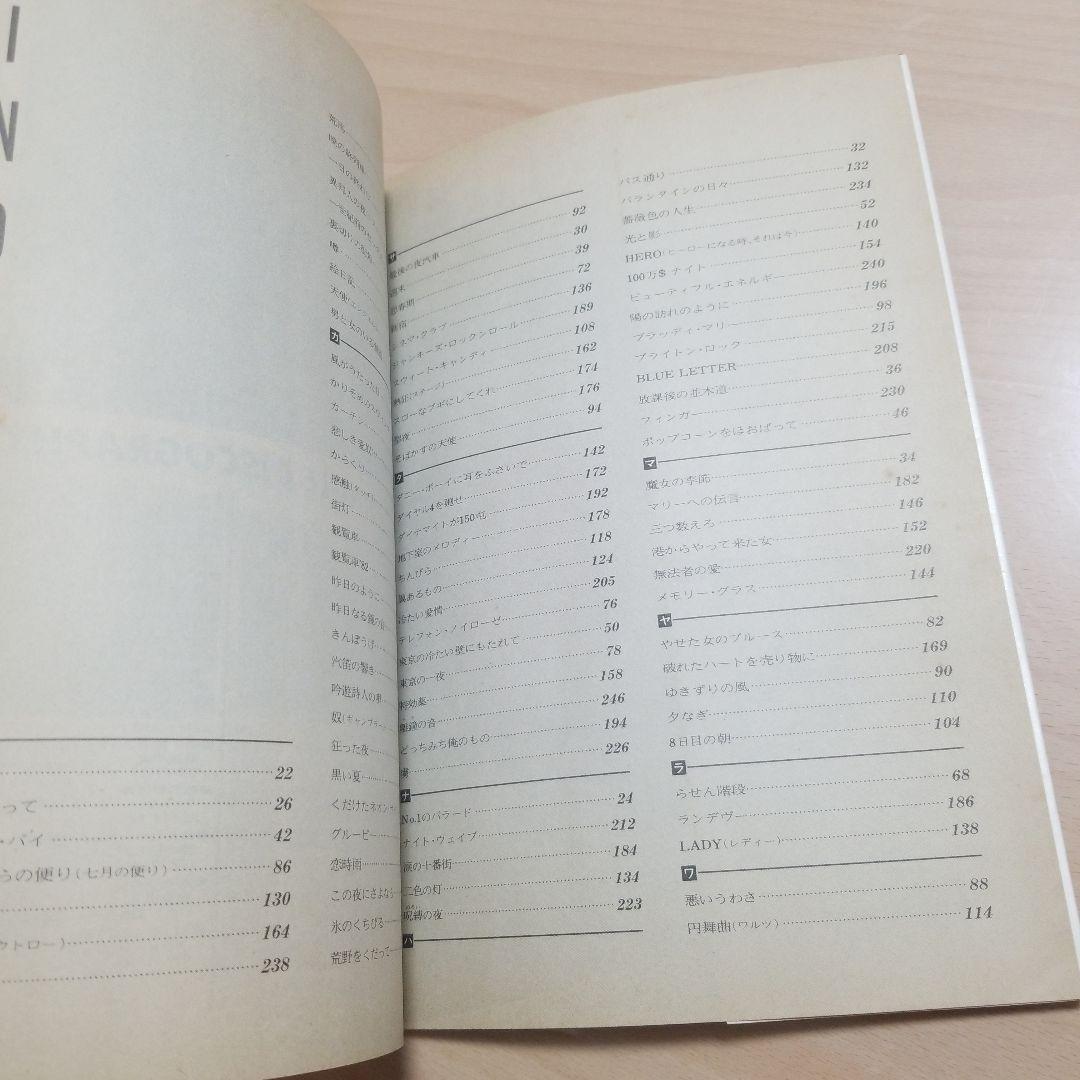 I
N
22
って 26
・バイ 42
らの便り(七月の便り) 86
130
クトロー) 164
238
カ
風がうたった
かりそめの
カーテン
悲しき愛奴
からくり
街灯
観覧車
観覧車'82
昨日のように
昨日なる
きんぽうげ
汽笛の響き
吟遊詩人の
奴(ギャンブラー
狂った夜
黒い夏
くだけたネオン
グルーピー
恋時雨
この夜にさよなら
氷のくちびる
荒野をくだって
サ
最後の夜汽車 92
週末 30
思春期 39
新宿 72
シネマ・クラブ 136
ジャンキーズ・ロックンロール 189
スウィート・キャンディー 108
熱狂(ステージ) 162
スローなブギにしてくれ 174
聖夜 176
そばかすの天使 94
タ
ダニー・ボーイに耳をふさいで 142
ダイヤル4を廻せ 172
ダイナマイトが150屯 192
地下室のメロディー 178
ちんぴら 118
翼あるもの 124
冷たい愛情 205
テレフォン・ノイローゼ 76
東京の冷たい壁にもたれて 50
東京の一夜 78
特効薬 158
弔鐘の音 246
どっちみち俺のもの 194
226
ナ
No.1のバラード 24
ナイト・ウェイブ 212
涙の十番街 184
二色の灯 134
呪縛の夜 223
ハ
バス通り 32
バランタインの日々 132
薔薇色の人生 234
光と影 52
HERO(ヒーローになる時、それは今) 140
100万$ナイト 154
ビューティフル・エネルギー 240
陽の訪れのように 196
ブラッディ・マリー 98
ブライトン・ロック 215
BLUE LETTER 208
放課後の並木道 36
フィンガー 230
ポップコーンをほおばって 46
マ
魔女の季節 34
マリーへの伝言 182
三つ数えろ 146
港からやって来た女 152
無法者の愛 220
メモリー・グラス 144
ヤ
やせた女のブルース 82
破れたハートを売り物に 169
ゆきずりの風 90
夕なぎ 110
8日目の朝 104
ラ
らせん階段 68
ランデヴー 186
LADY(レディー) 138
ワ
悪いうわさ 88
円舞曲(ワルツ) 114